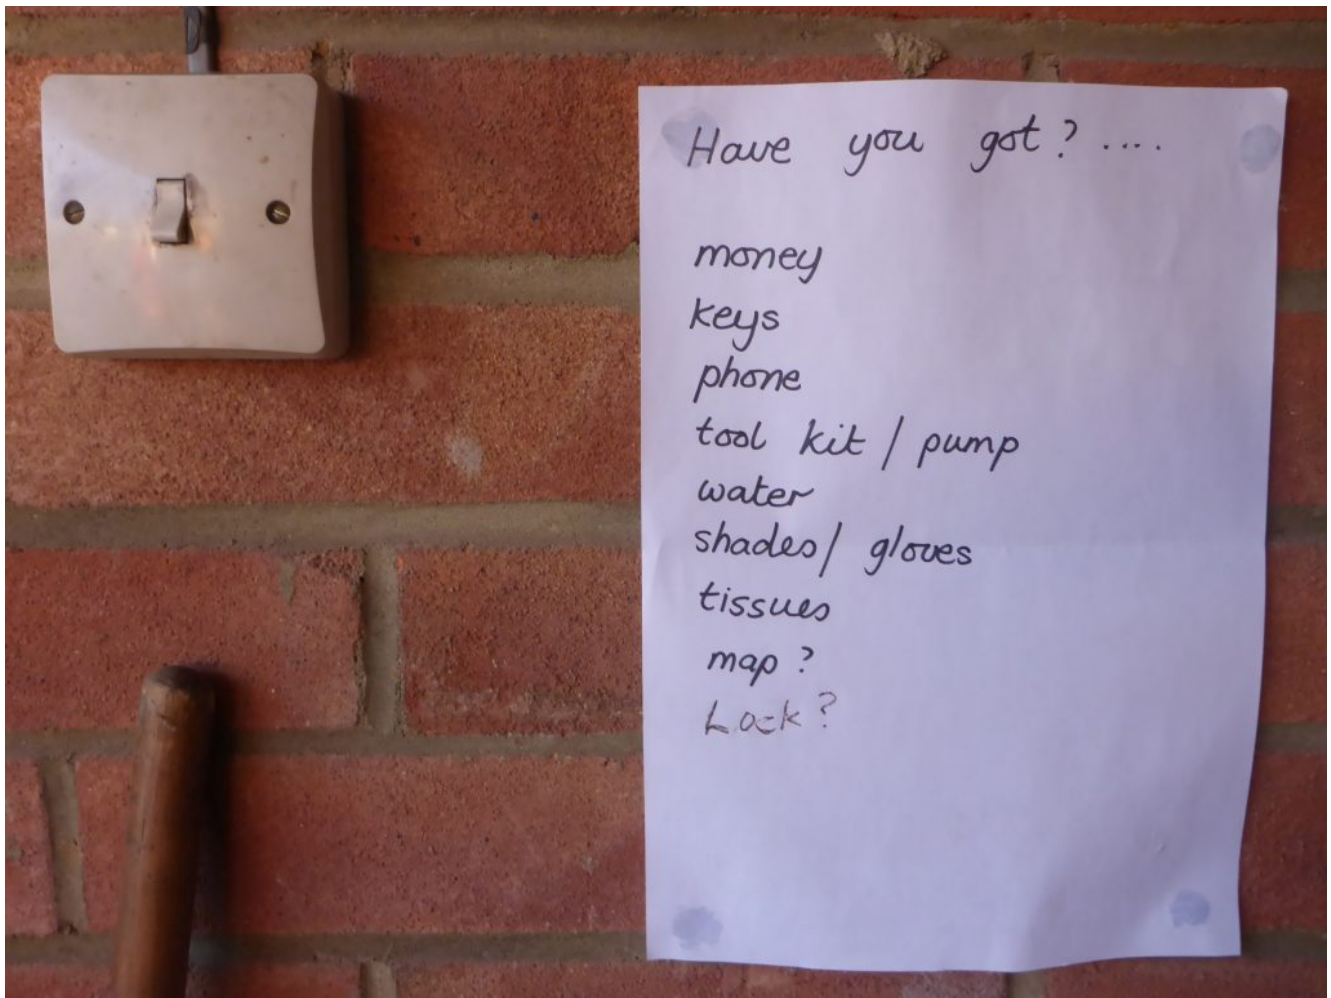 Have you got? ....
money
keys
phone
tool kit / pump
water
shades/ gloves
tissues
map ?
Lock ?